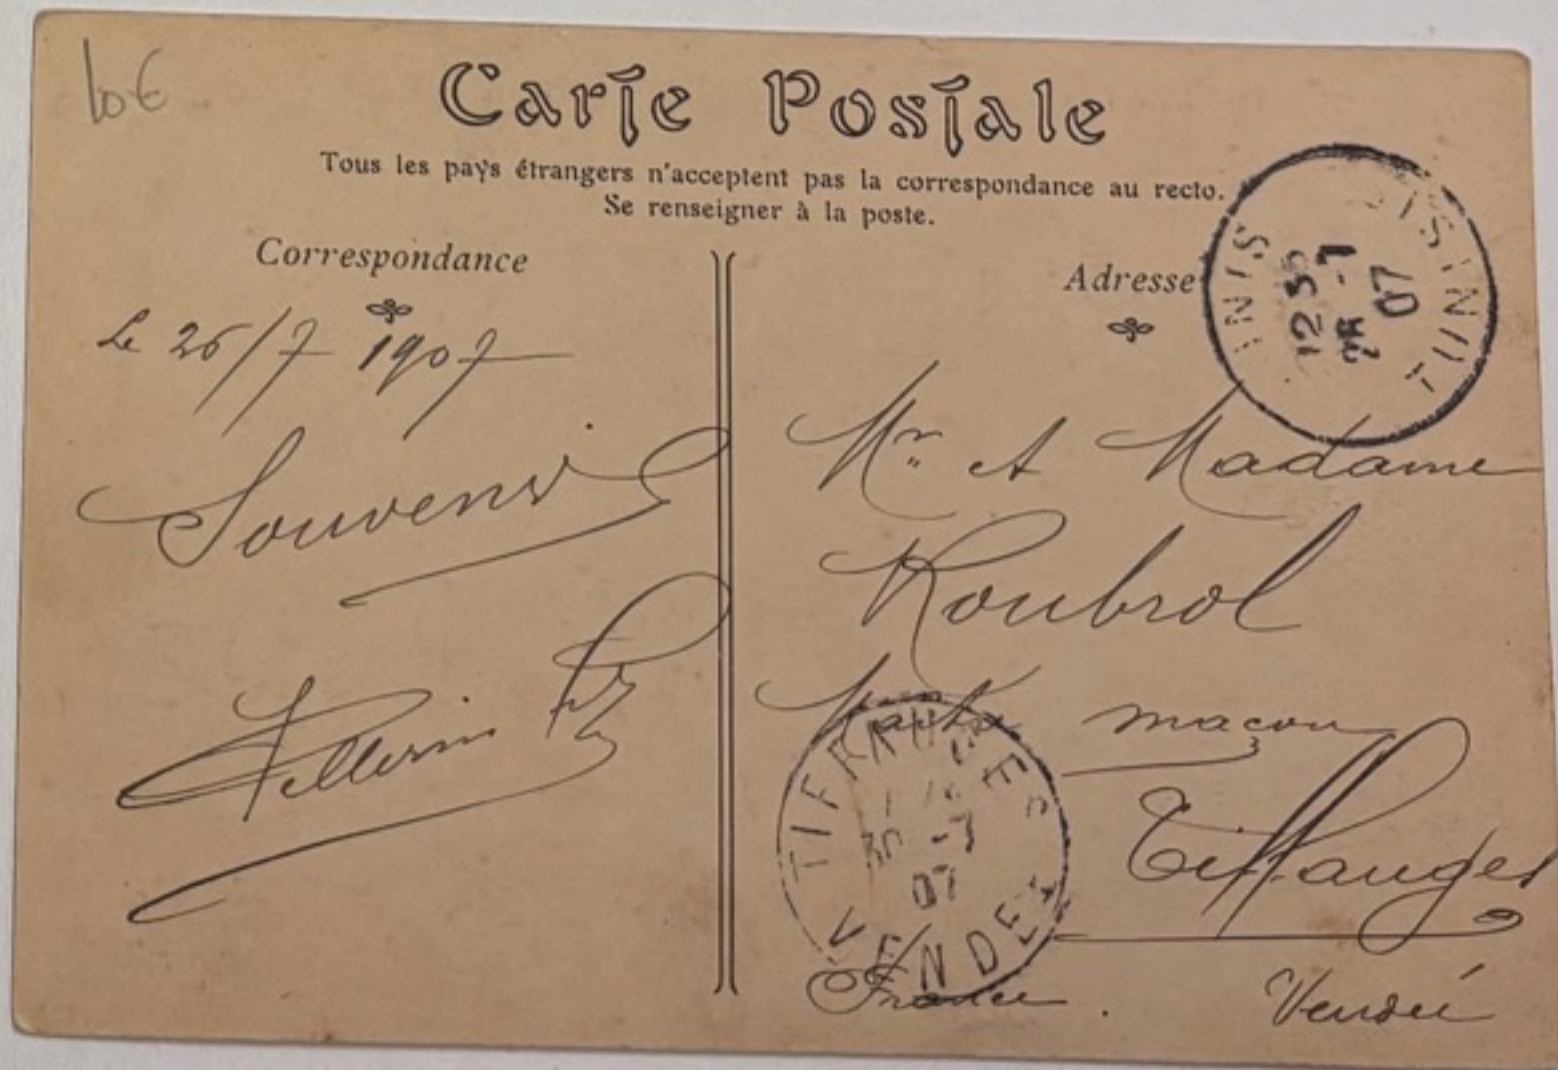 10€
Carte Postale
Tous les pays étrangers n'acceptent pas la correspondance au recto.
Se renseigner à la poste.
Correspondance
Le 26/7 1907
Souvenir
Pellerin
Adresse
TUNIS TUNISIE
12 35
-7
07
Mr et Madame
Roubrol
maçon
Tiffauges
Vendée
France
TIFFAUGES
30 -7
07
VENDÉE